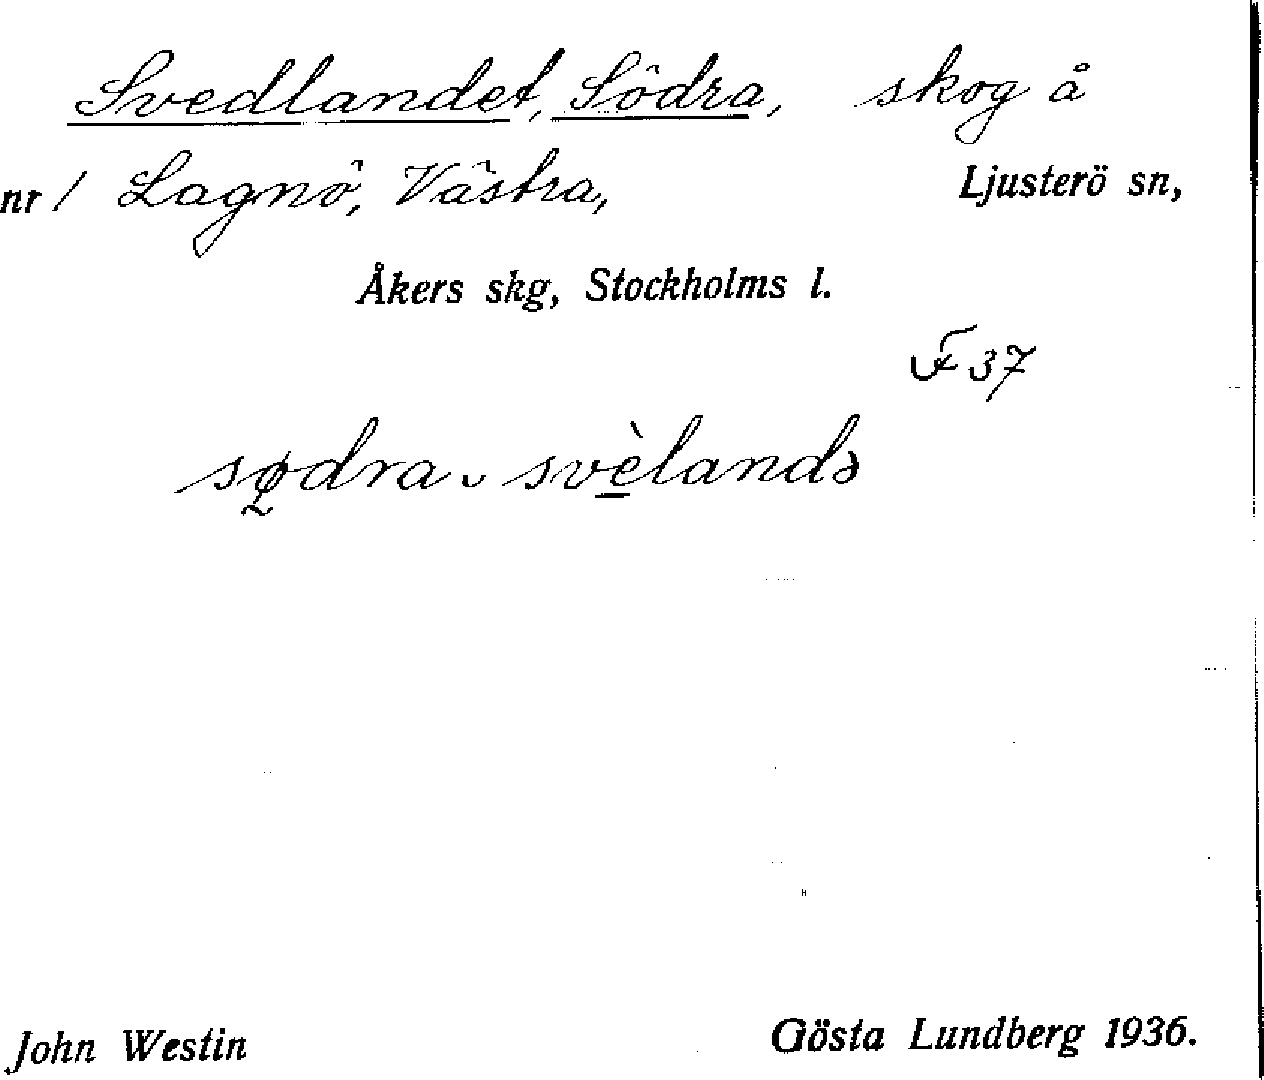 Svedlandet, Södra, skog å
nr 1 Lagnö, Västra, Ljusterö sn,
Åkers skg, Stockholms l.
F 37
sødra svèlandə
John Westin Gösta Lundberg 1936.